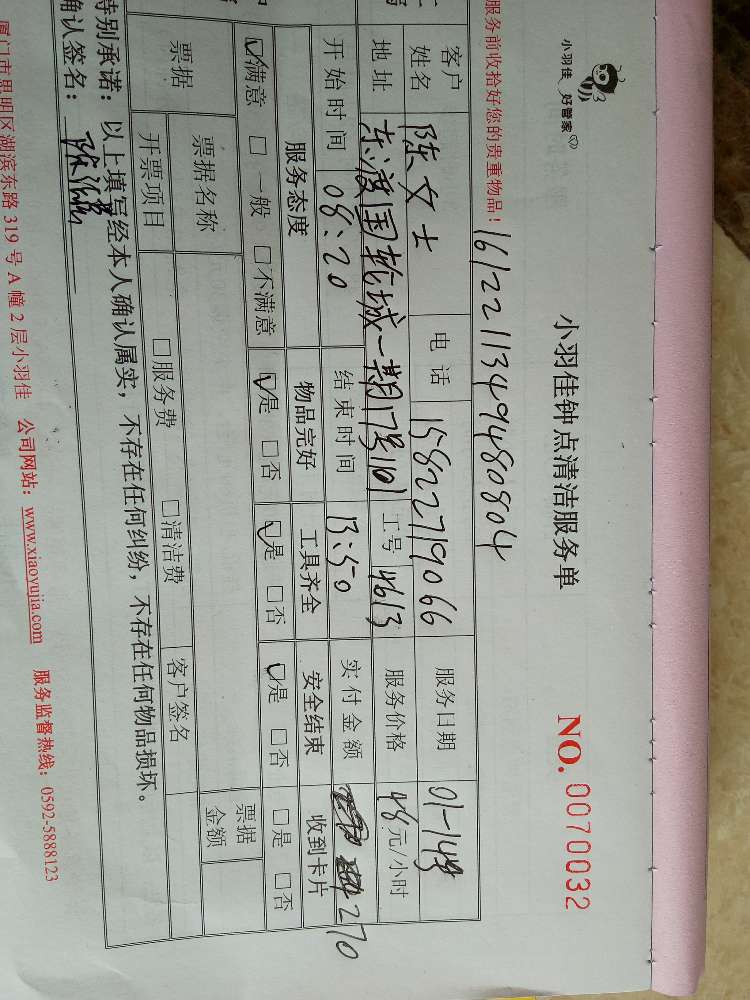 小羽佳 好管家
小羽佳钟点清洁服务单
NO. 0070032
服务前收拾好您的贵重物品!
1612211349480804
客户姓名 陈女士 电话 15822719066 服务日期 01-14号
地址 东渡国轮城一期17号101 工号 4613 服务价格 48元/小时
开始时间 08:20 结束时间 13:50 实付金额 270
服务态度 物品完好 工具齐全 安全结束 收到卡片
☑满意 □一般 □不满意 ☑是 □否 ☑是 □否 ☑是 □否 □是 □否
票据 票据名称 票据金额
开票项目 □服务费 □清洁费 客户签名
特别承诺:以上填写经本人确认属实,不存在任何纠纷,不存在任何物品损坏。
确认签名:
厦门市思明区湖滨东路319号A幢2层小羽佳 公司网站:www.xiaoyujia.com 服务监督热线:0592-5888123